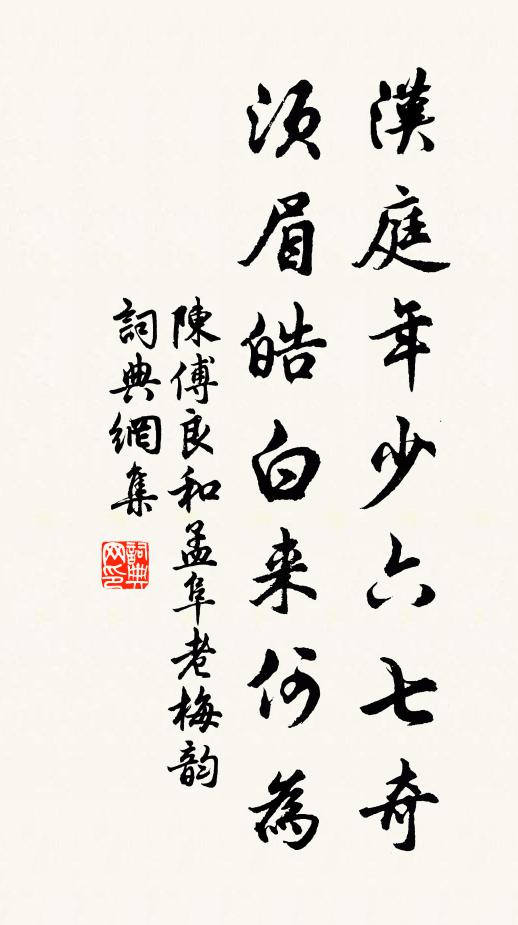 漢庭年少六七奇
須眉皓白来何為
陳傅良和孟阜老梅韵
詞典網集
詞典网印